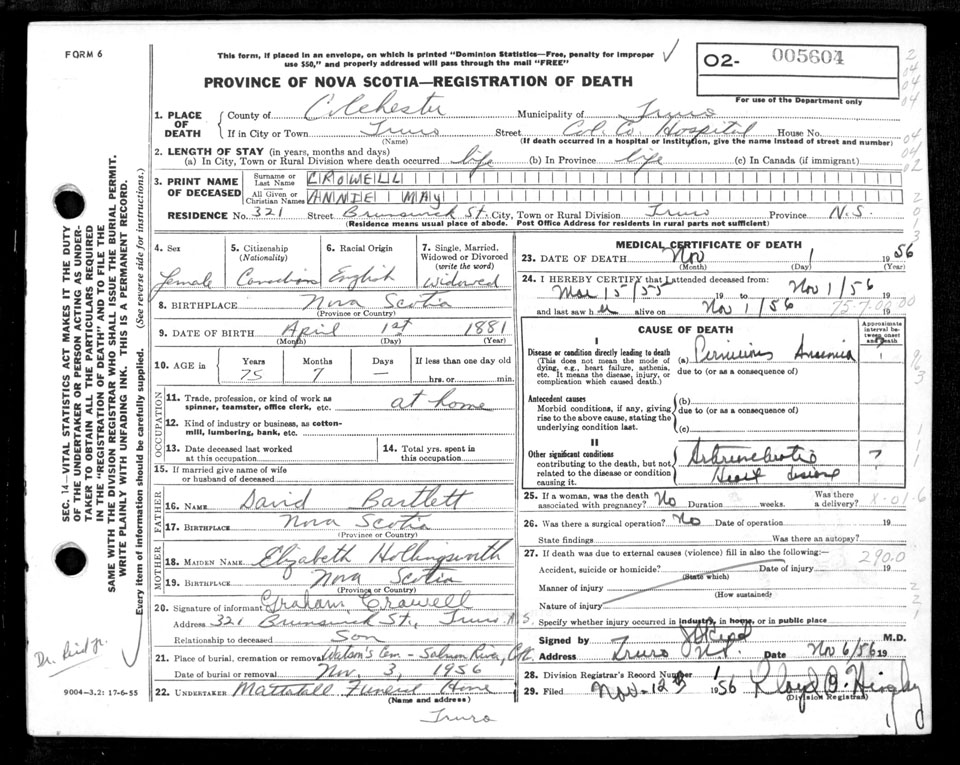 FORM 6
This form, if placed in an envelope, on which is printed "Dominion Statistics—Free, penalty for improper
use $50," and properly addressed will pass through the mail "FREE"
02- 005604
For use of the Department only
PROVINCE OF NOVA SCOTIA—REGISTRATION OF DEATH
1. PLACE OF DEATH
County of Colchester Municipality of Truro
If in City or Town Truro Street Col. Co. Hospital House No.
(Name) (If death occurred in a hospital or institution, give the name instead of street and number)
2. LENGTH OF STAY (in years, months and days)
(a) In City, Town or Rural Division where death occurred life (b) In Province life (c) In Canada (if immigrant)
3. PRINT NAME OF DECEASED
Surname or Last Name CROWELL
All Given or Christian Names ANNIE MAY
RESIDENCE No. 321 Street Brunswick St. City, Town or Rural Division Truro Province N.S.
(Residence means usual place of abode. Post Office Address for residents in rural parts not sufficient)
4. Sex Female
5. Citizenship (Nationality) Canadian
6. Racial Origin English
7. Single, Married, Widowed or Divorced (write the word) Widowed
8. BIRTHPLACE Nova Scotia
(Province or Country)
9. DATE OF BIRTH April 1st 1881
(Month) (Day) (Year)
10. AGE in Years 75 Months 7 Days — If less than one day old hrs. or min.
OCCUPATION
11. Trade, profession, or kind of work as spinner, teamster, office clerk, etc. at home
12. Kind of industry or business, as cotton-mill, lumbering, bank, etc.
13. Date deceased last worked at this occupation
14. Total yrs. spent in this occupation
15. If married give name of wife or husband of deceased
FATHER
16. NAME David Bartlett
17. BIRTHPLACE Nova Scotia
(Province or Country)
MOTHER
18. MAIDEN NAME Elizabeth Hollingsworth
19. BIRTHPLACE Nova Scotia
(Province or Country)
20. Signature of informant Graham Crowell
Address 321 Brunswick St., Truro, N.S.
Relationship to deceased Son
21. Place of burial, cremation or removal Watson's Cem - Salmon River,
Date of burial or removal Nov. 3, 1956
22. UNDERTAKER Mattatall Funeral Home
(Name and address)
Truro
MEDICAL CERTIFICATE OF DEATH
23. DATE OF DEATH Nov 1 1956
(Month) (Day) (Year)
24. I HEREBY CERTIFY that I attended deceased from:
Mar 15/55 19 to Nov 1/56 19
and last saw h alive on Nov 1/56 19
75-7-00.00
CAUSE OF DEATH
Approximate interval between onset and death
I
Disease or condition directly leading to death (a) Pernicious Anaemia ?
(This does not mean the mode of dying, e.g., heart failure, asthenia, etc. It means the disease, injury, or complication which caused death.)
due to (or as a consequence of)
Antecedent causes
Morbid conditions, if any, giving rise to the above cause, stating the underlying condition last.
(b)
due to (or as a consequence of)
(c)
II
Other significant conditions contributing to the death, but not related to the disease or condition causing it.
Arteriosclerotic Heart disease ?
25. If a woman, was the death associated with pregnancy? No Duration weeks. Was there a delivery?
26. Was there a surgical operation? No Date of operation 19
State findings Was there an autopsy?
27. If death was due to external causes (violence) fill in also the following:— 290.0
Accident, suicide or homicide? Date of injury 19
(State which)
Manner of injury
(How sustained)
Nature of injury
Specify whether injury occurred in industry, in home, or in public place
Signed by M.D.
Address Truro N.S. Date Nov 6/56 19
28. Division Registrar's Record Number 1
29. Filed Nov. 12 1956 Lloyd B.
(Division Registrar)
SEC. 14—VITAL STATISTICS ACT MAKES IT THE DUTY
OF THE UNDERTAKER OR PERSON ACTING AS UNDER-
TAKER TO OBTAIN ALL THE PARTICULARS REQUIRED
IN THE "REGISTRATION OF DEATH" AND TO FILE THE
SAME WITH THE DIVISION REGISTRAR WHO SHALL ISSUE THE BURIAL PERMIT.
WRITE PLAINLY WITH UNFADING INK. THIS IS A PERMANENT RECORD.
Every item of information should be carefully supplied. (See reverse side for instructions.)
Dr. Reid Jr.
9004-3.2: 17-6-55